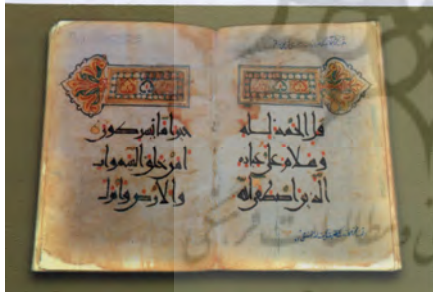 قل الحمد لله
وسلام على عباده
الذين اصطفى الله
خير اما يشركون
امن خلق السموات
والارض وانزل